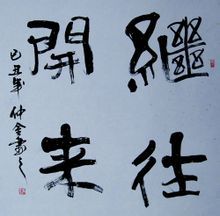 繼往
開来
己丑年仲金書之